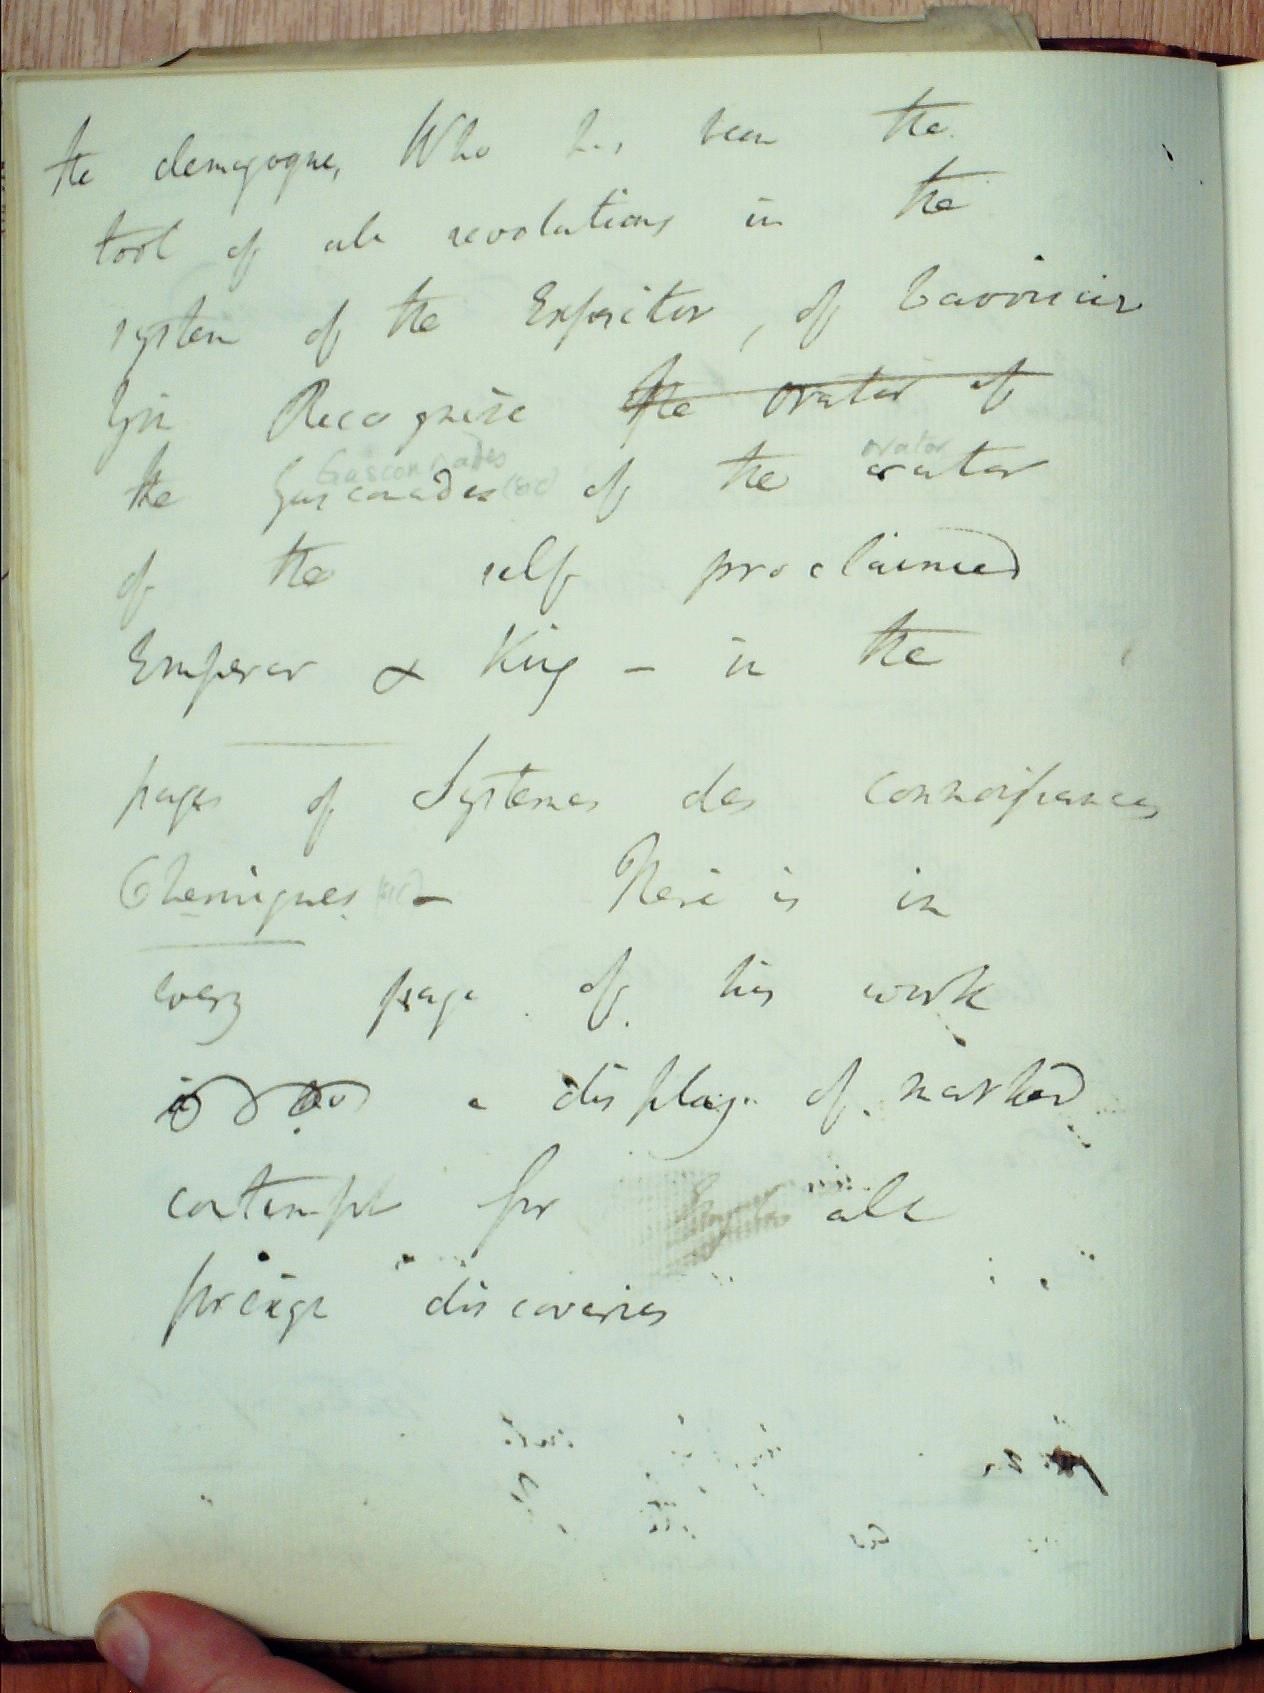 the demagogue, Who has been the
tool of all revolutions in the
system of the Expositor, of Lavoisier
Recognise the orator of
Gasconades orator
the Gasconades (sic) of the orator
of the self proclaimed
Emperor & King – in the
pages of Systemes des connoissances
Chemiques (sic) – There is in
every page of his work
a display of marked
contempt for all
foreign discoveries